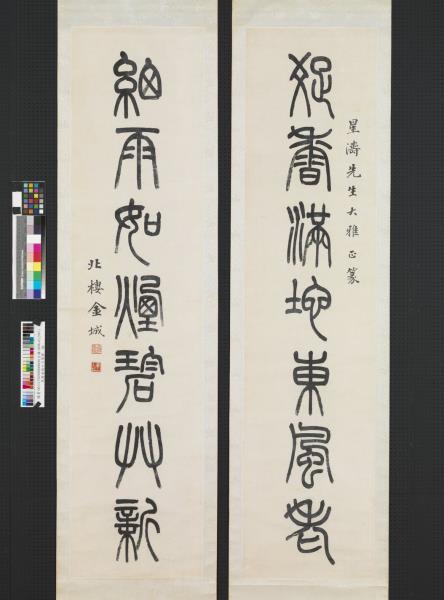 星濤先生大雅正篆
香滿地東風老
細雨如煙碧艸新
北樓金城